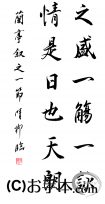 之盛一觴一詠
情是日也天朗
蘭亭叙之一節 臨
(C)お手本.com